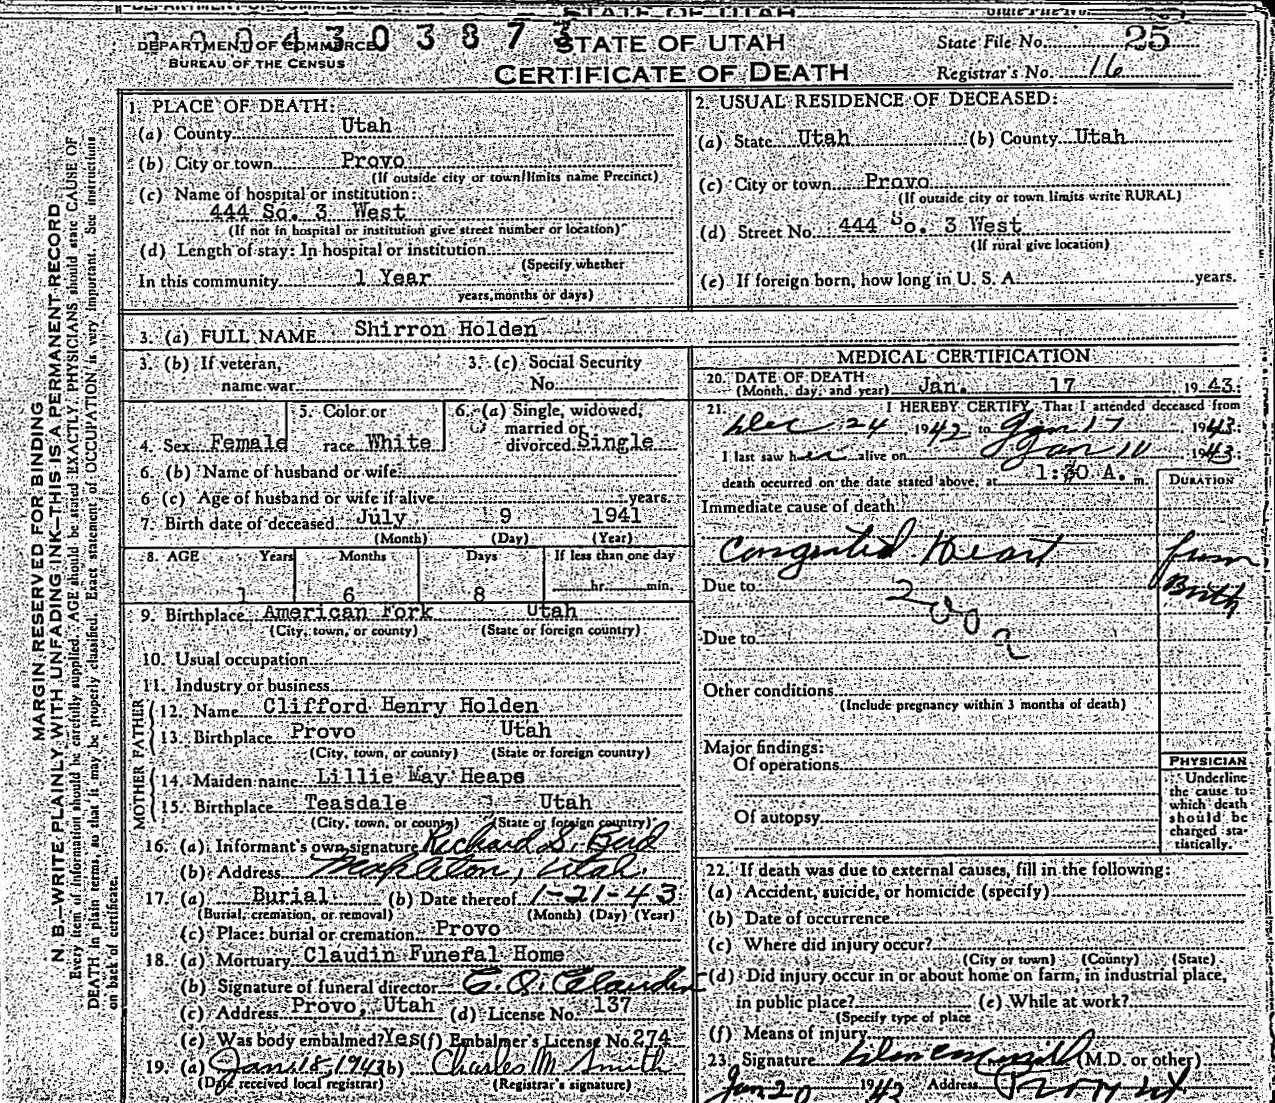 2004303873
DEPARTMENT OF COMMERCE
BUREAU OF THE CENSUS
STATE OF UTAH
CERTIFICATE OF DEATH
State File No. 25
Registrar's No. 16
MARGIN RESERVED FOR BINDING
N. B.—WRITE PLAINLY WITH UNFADING INK—THIS IS A PERMANENT RECORD
Every item of information should be carefully supplied. AGE should be stated EXACTLY. PHYSICIANS should state CAUSE OF
DEATH in plain terms, so that it may be properly classified. Exact statement of OCCUPATION is very important. See instructions
on back of certificate.
1. PLACE OF DEATH:
(a) County Utah
(b) City or town Provo
(If outside city or town limits name Precinct)
(c) Name of hospital or institution:
444 So. 3 West
(If not in hospital or institution give street number or location)
(d) Length of stay: In hospital or institution
(Specify whether
In this community 1 Year
years, months or days)
2. USUAL RESIDENCE OF DECEASED:
(a) State Utah (b) County Utah
(c) City or town Provo
(If outside city or town limits write RURAL)
(d) Street No. 444 So. 3 West
(If rural give location)
(e) If foreign born, how long in U. S. A. years.
3. (a) FULL NAME Shirron Holden
3. (b) If veteran, name war
3. (c) Social Security No.
4. Sex Female
5. Color or race White
6. (a) Single, widowed, married or divorced Single
6. (b) Name of husband or wife
6 (c) Age of husband or wife if alive years.
7. Birth date of deceased July 9 1941
(Month) (Day) (Year)
8. AGE Years Months Days If less than one day
1 6 8 hr. min.
9. Birthplace American Fork Utah
(City, town, or county) (State or foreign country)
10. Usual occupation
11. Industry or business
FATHER
12. Name Clifford Henry Holden
13. Birthplace Provo Utah
(City, town, or county) (State or foreign country)
MOTHER
14. Maiden name Lillie May Heaps
15. Birthplace Teasdale Utah
(City, town, or county) (State or foreign country)
16. (a) Informant's own signature Richard S. Bird
(b) Address Mapleton, Utah.
17. (a) Burial (b) Date thereof 1-21-43
(Burial, cremation, or removal) (Month) (Day) (Year)
(c) Place: burial or cremation Provo
18. (a) Mortuary Claudin Funefal Home
(b) Signature of funeral director
(c) Address Provo, Utah (d) License No. 137
(e) Was body embalmed? Yes (f) Embalmer's License No. 274
19. (a) Jan 18, 1943 (b) Charles M. Smith
(Date received local registrar) (Registrar's signature)
MEDICAL CERTIFICATION
20. DATE OF DEATH Jan. 17 1943.
(Month, day, and year)
21. I HEREBY CERTIFY, That I attended deceased from
Dec 24 1942 to Jan 17 1943.
I last saw her alive on Jan 10 1943.
death occurred on the date stated above, at 1:30 A. m.
DURATION
Immediate cause of death
Congenital Heart from Birth
Due to
Due to
Other conditions
(Include pregnancy within 3 months of death)
Major findings:
Of operations
Of autopsy
PHYSICIAN
Underline
the cause to
which death
should be
charged sta-
tistically.
22. If death was due to external causes, fill in the following:
(a) Accident, suicide, or homicide (specify)
(b) Date of occurrence
(c) Where did injury occur?
(City or town) (County) (State)
(d) Did injury occur in or about home on farm, in industrial place,
in public place? (e) While at work?
(Specify type of place
(f) Means of injury
23. Signature (M.D. or other)
Jan 20 1943 Address Provo Ut